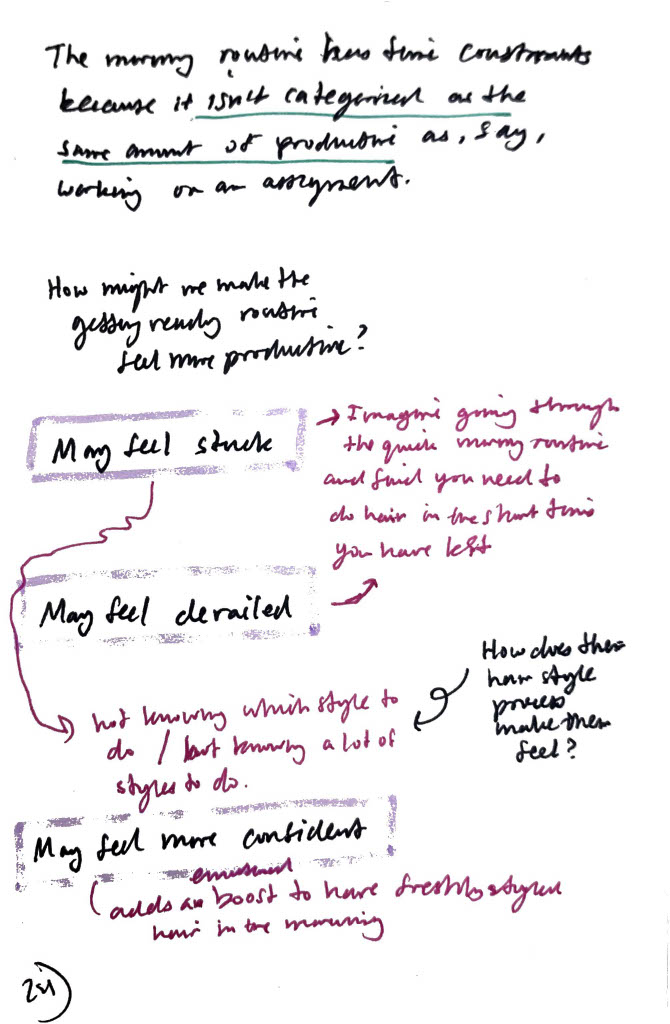 The morning routine has time constraints
because it isn't categorized as the
same amount of productive as, say,
working on an assignment.
How might we make the
getting ready routine
feel more productive?
May feel stuck
→ Imagine going through
the quick morning routine
and find you need to
do hair in the short time
you have left
May feel derailed
How does their
hair style
process
make them
feel?
not knowing which style to
do / not knowing a lot of
styles to do.
May feel more confident
emotional
adds an boost to have freshly styled
hair in the morning